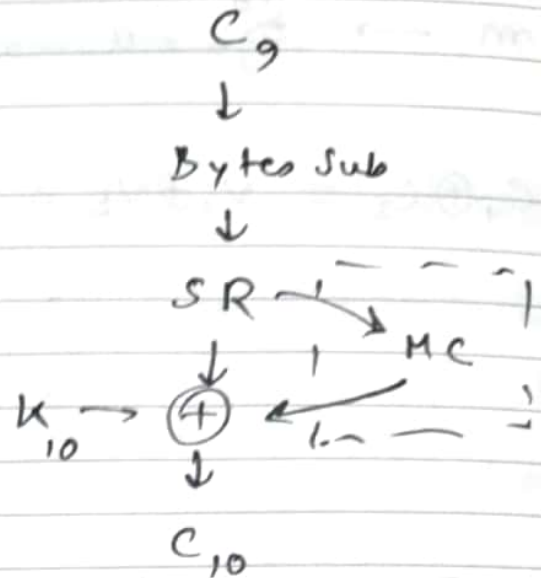 C₉
↓
Bytes Sub
↓
SR → MC
↓
K₁₀ → ⊕ ←
↓
C₁₀